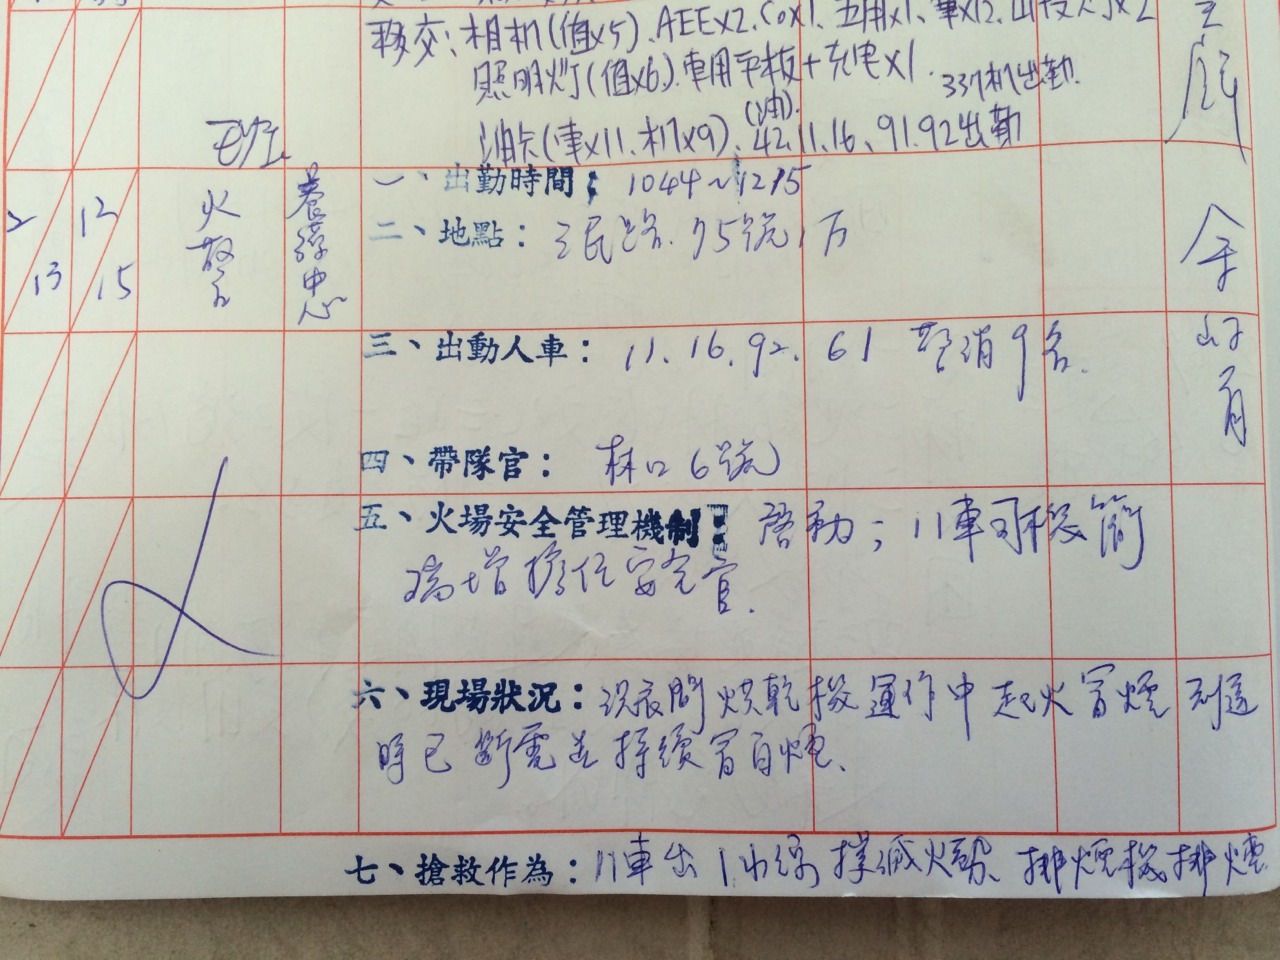 移交：相机(值x5)、AEEx2、COx1、五用x1、
照明灯(值x6)、車用平板+充电x1.
337机出勤.
(油).
油卡(車x11、机x9)、42、11、16、91、92出勤
一、出勤時間： 1044~1215
二、地點： 民路.75號
2 12 火警 養護中心
13 15
三、出動人車： 11、16、92、61 警消9名.
四、帶隊官： 林口6號
五、火場安全管理機制： 啓動；11車司機簡
瑞增擔任安全官.
六、現場狀況：洗衣間烘乾機運作中起火冒煙 到達
時已斷電並持續冒白煙、
七、搶救作為：11車出1水線撲滅火勢、排煙機排煙